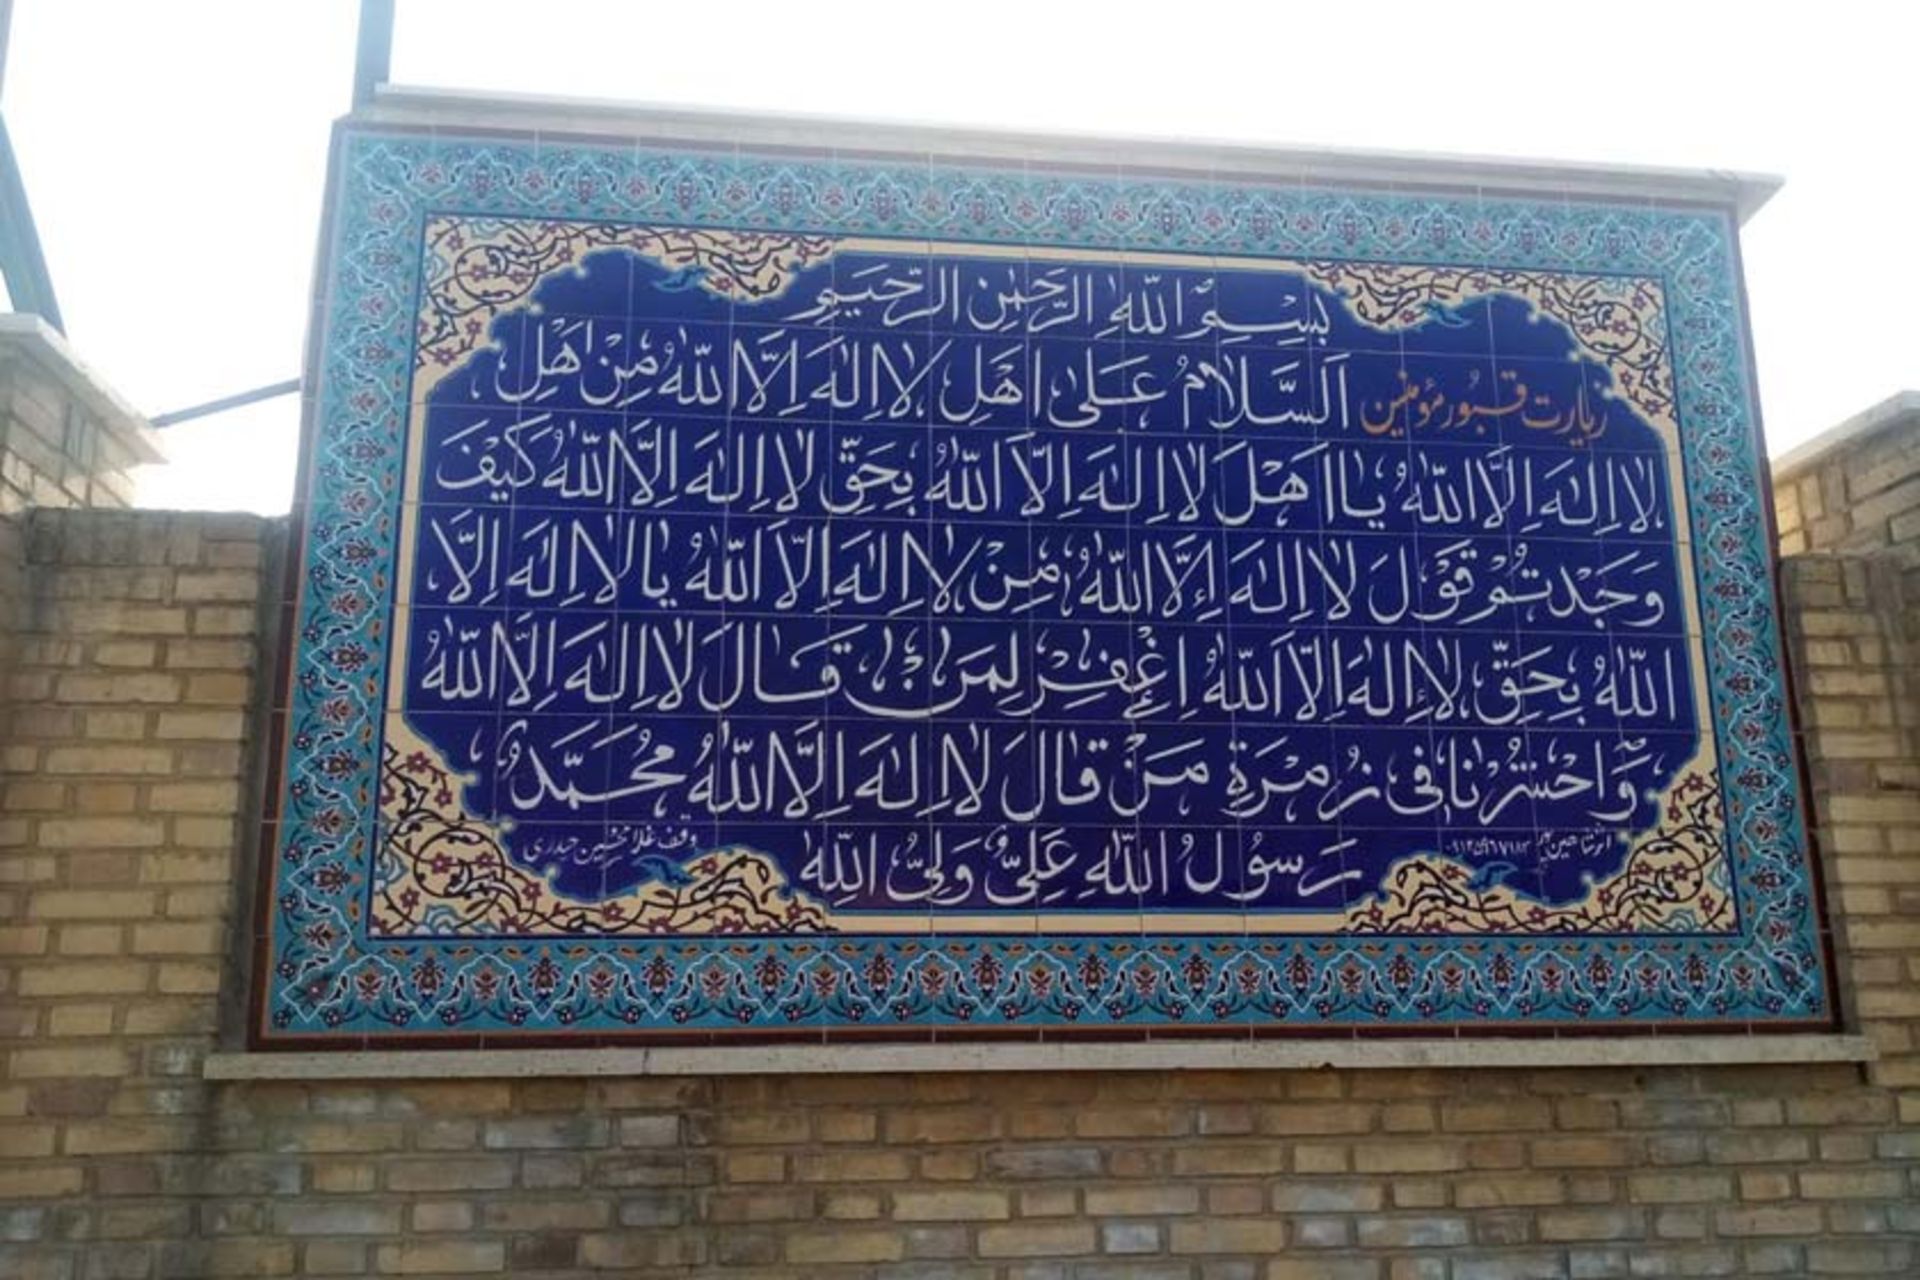 بِسْمِ اللّٰهِ الرَّحْمٰنِ الرَّحیمِ
زیارت قبور مؤمنین اَلسَّلامُ عَلیٰ اَهْلِ لا اِلٰهَ اِلَّا اللّٰهُ مِنْ اَهْلِ
لا اِلٰهَ اِلَّا اللّٰهُ یا اَهْلَ لا اِلٰهَ اِلَّا اللّٰهُ بِحَقِّ لا اِلٰهَ اِلَّا اللّٰهُ کَیْفَ
وَجَدْتُمْ قَوْلَ لا اِلٰهَ إِلَّا اللّٰهُ مِنْ لا اِلٰهَ اِلَّا اللّٰهُ یا لا اِلٰهَ اِلَّا
اللّٰهُ بِحَقِّ لا إِلٰهَ اِلَّا اَللّٰهُ اِغْفِرْ لِمَنْ قالَ لا اِلٰهَ اِلَّا اللّٰهُ
وَاحْشُرْنا فی زُمْرَةِ مَنْ قالَ لا اِلٰهَ اِلَّا اللّٰهُ مُحَمَّدٌ
رَسُولُ اللّٰهِ عَلِیٌّ وَلِیُّ اللّٰهِ
وقف غلامحسین حیدری